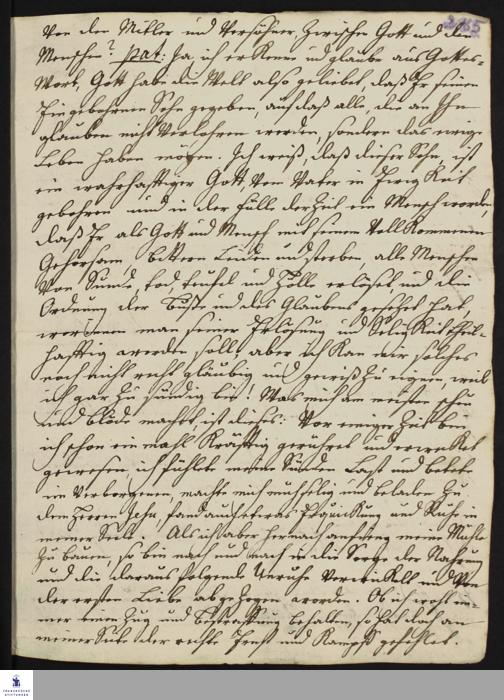 von dem Mitler und Versöhner zwischen Gott und den
Menschen? pat: Ja, ich erkenne und glaube aus Gottes-
Wort, Gott habe die Welt also geliebet, daß Er seinen
Eingebohrnen Sohn gegeben, auf daß alle, die an Ihn
glauben nicht verlohren werden, sondern das ewige
Leben haben mögen. Ich weiß, daß dieser Sohn, ist
ein wahrhafftiger Gott, vom Vater in Ewigkeit
gebohren und in der Fülle der Zeit ein Mensch worden,
daß Er als Gott und Mensch mit seinem vollkommenen
Gehorsam, bittern Leiden und sterben, alle Menschen
von Sünde, Tod, Teufel und Hölle erlöset und die
Ordnung der Buße und des Glaubens gesetzet hat,
worinnen man seiner Erlösung und Seligkeit theil-
hafftig werden soll; aber ich kan mir solches
noch nicht recht gläubig und gewiß zu eignen, weil
ich gar zu sündig bin! Was mich am meisten scheu
und blöde machet, ist dieses: Vor einiger Zeit bin
ich schon einmahl kräfftig gerühret und erwecket
gewesen, ich fühlete meine Sünden Last und betete
im Verborgenen, machte mich mühselig und beladen zu
dem Herrn Jesu, fand auch etwas Erquickung und Ruhe in
meiner Seele. Als ich aber hernach anfieng meine Mühle
zu bauen, so bin nach und nach in die Sorge der Nahrung
und die daraus folgende Unruhe verwickelt und von
der ersten Liebe abgezogen worden. Ob ich nicht im-
mer einen Zug und Bestraffung behalten, so hat doch an
meiner Seite der rechte Ernst und Kampf gefehlet.
FRANCKESCHE
STIFTUNGEN